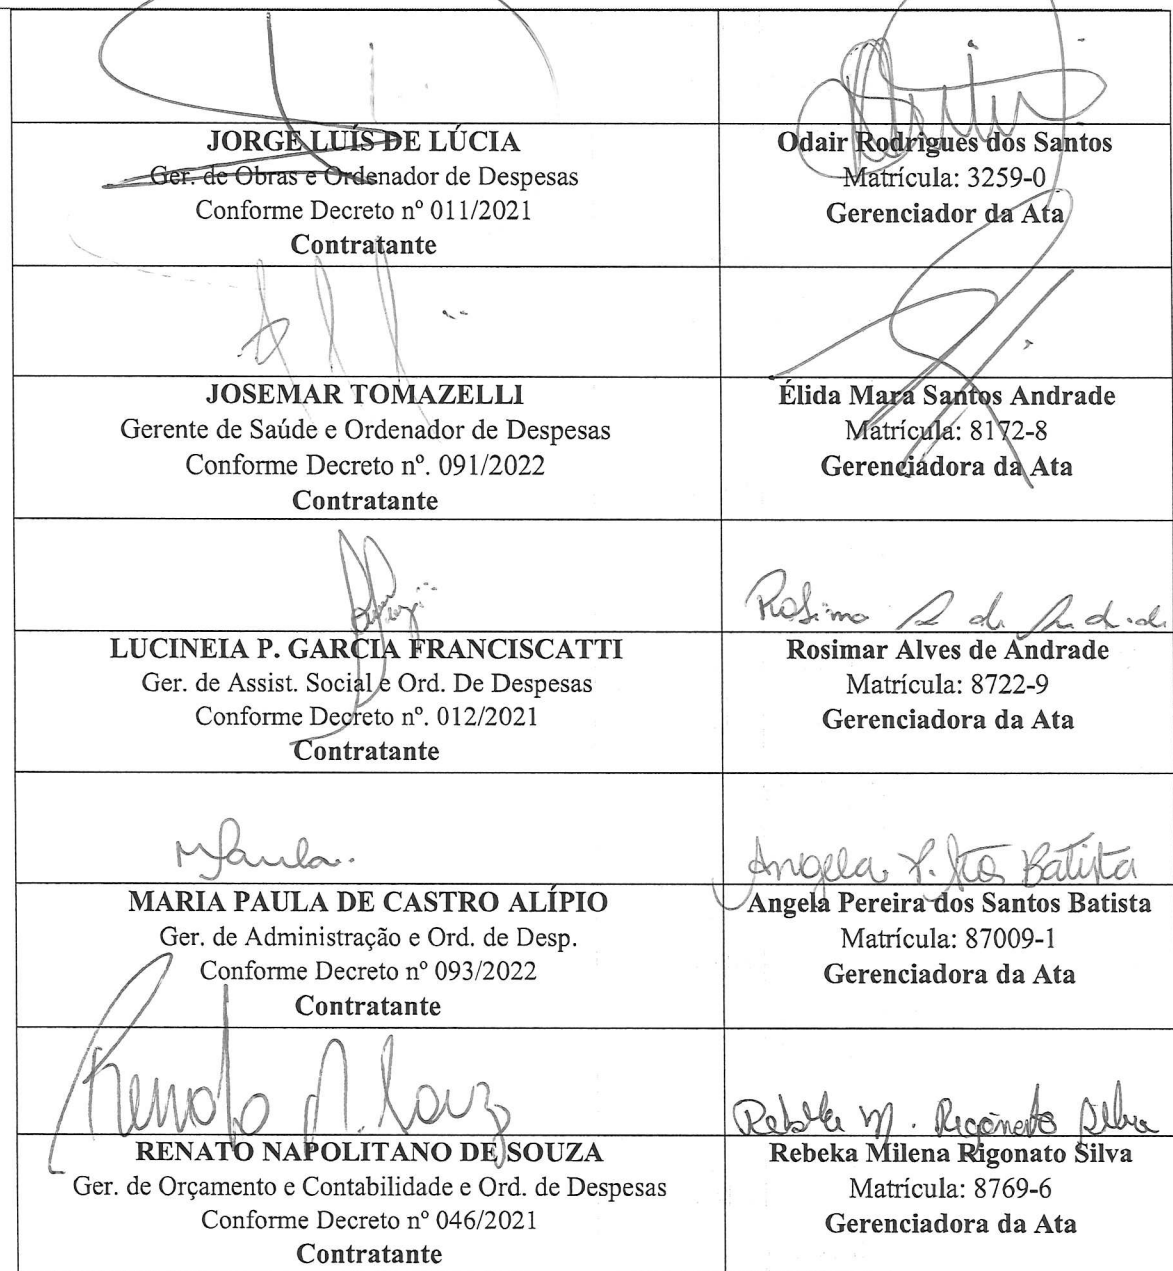 JORGE LUÍS DE LÚCIA
Ger. de Obras e Ordenador de Despesas
Conforme Decreto nº 011/2021
Contratante
Odair Rodrigues dos Santos
Matrícula: 3259-0
Gerenciador da Ata
JOSEMAR TOMAZELLI
Gerente de Saúde e Ordenador de Despesas
Conforme Decreto nº. 091/2022
Contratante
Élida Mara Santos Andrade
Matrícula: 8172-8
Gerenciadora da Ata
LUCINEIA P. GARCIA FRANCISCATTI
Ger. de Assist. Social e Ord. De Despesas
Conforme Decreto nº. 012/2021
Contratante
Rosimar Alves de Andrade
Matrícula: 8722-9
Gerenciadora da Ata
MPaula.
MARIA PAULA DE CASTRO ALÍPIO
Ger. de Administração e Ord. de Desp.
Conforme Decreto nº 093/2022
Contratante
Angela P. Stos Batista
Angela Pereira dos Santos Batista
Matrícula: 87009-1
Gerenciadora da Ata
Renato N. Souza
RENATO NAPOLITANO DE SOUZA
Ger. de Orçamento e Contabilidade e Ord. de Despesas
Conforme Decreto nº 046/2021
Contratante
Rebeka M. Rigonato Silva
Rebeka Milena Rigonato Silva
Matrícula: 8769-6
Gerenciadora da Ata